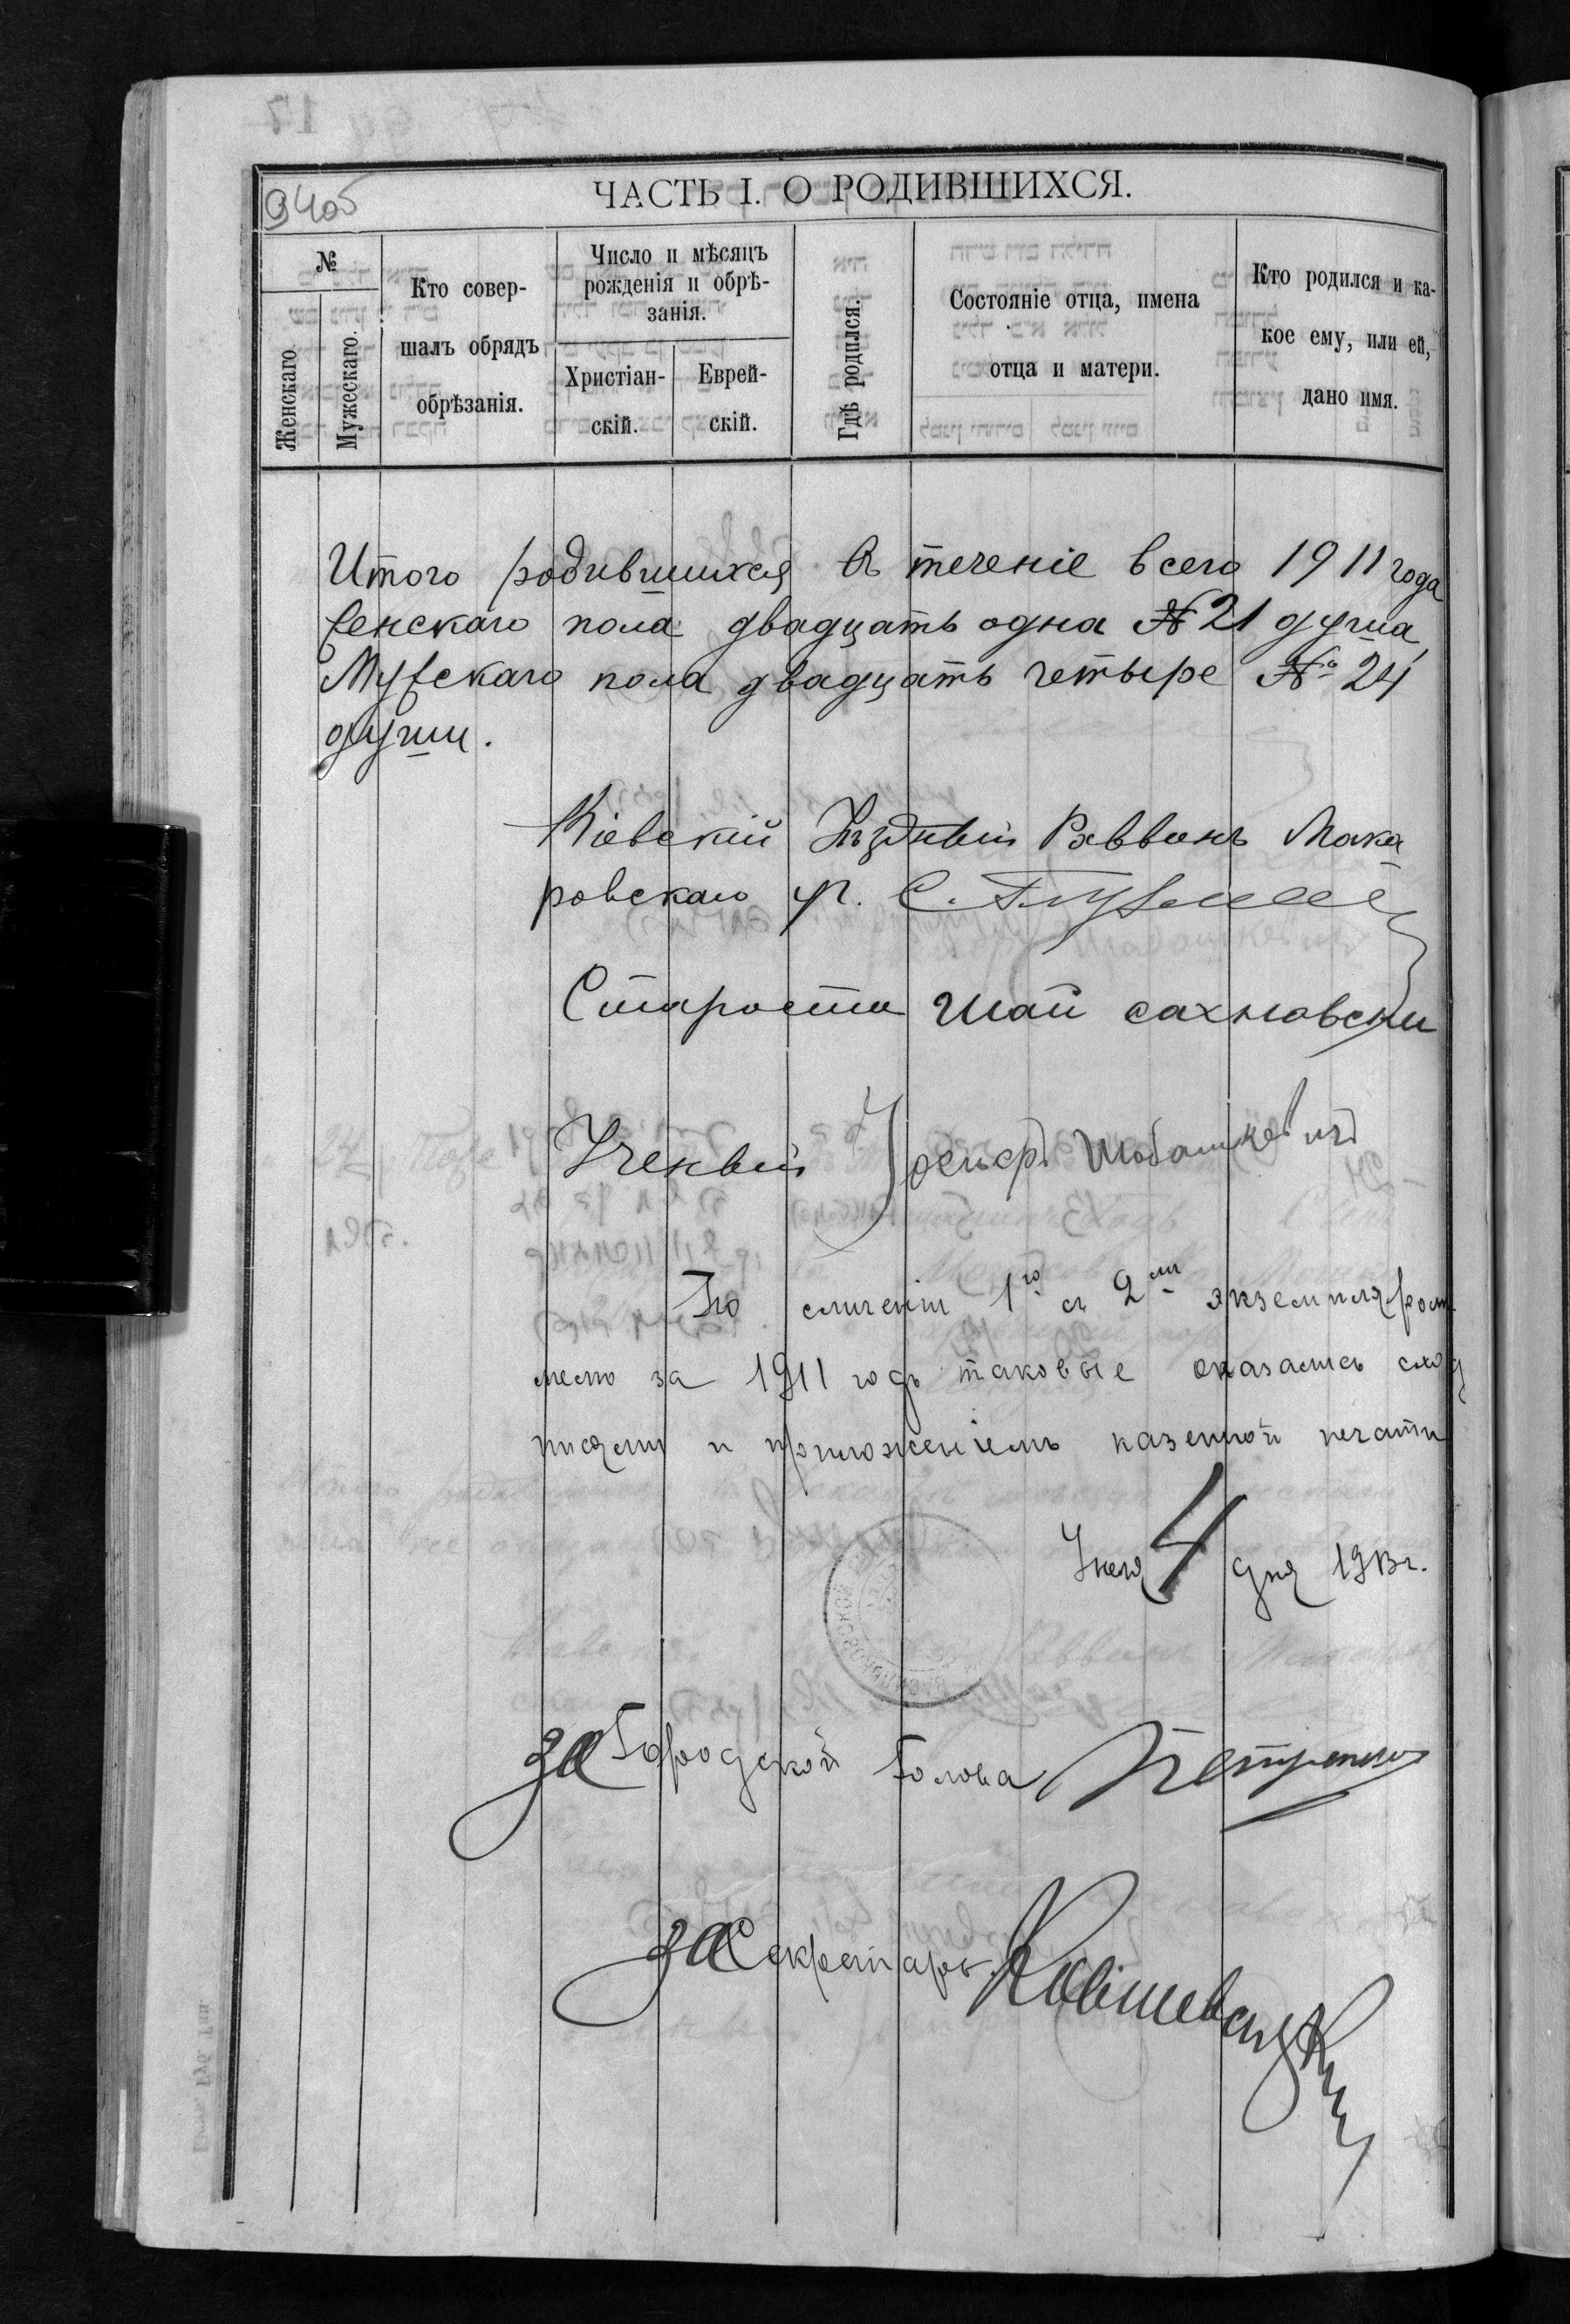 94об
ЧАСТЬ I. О РОДИВШИХСЯ.
№
Женскаго.
Мужескаго.
Кто совер-
шалъ обрядъ
обрѣзанія.
Число и мѣсяцъ
рожденія и обрѣ-
занія.
Христіан-
скій.
Еврей-
скій.
Гдѣ родился.
Состояніе отца, имена
отца и матери.
Кто родился и ка-
кое ему, или ей,
дано имя.
Итого родившихся въ теченіе всего 1911 года
женскаго пола двадцать одна № 21 душа,
Мужскаго пола двадцать четыре № 24
души.
Кіевскій Уѣздный Раввинъ Мака
ровскаго р.
Староста Шай сахновски
Ученый Іосифъ Шабашкевичъ
По сличеніи 1го съ 2мъ экземпляром
за 1911 годъ таковые оказались сход
и приложеніемъ казенной печати
4 дня 1913 г.
за Городской Голова Петренко
за Секретарь